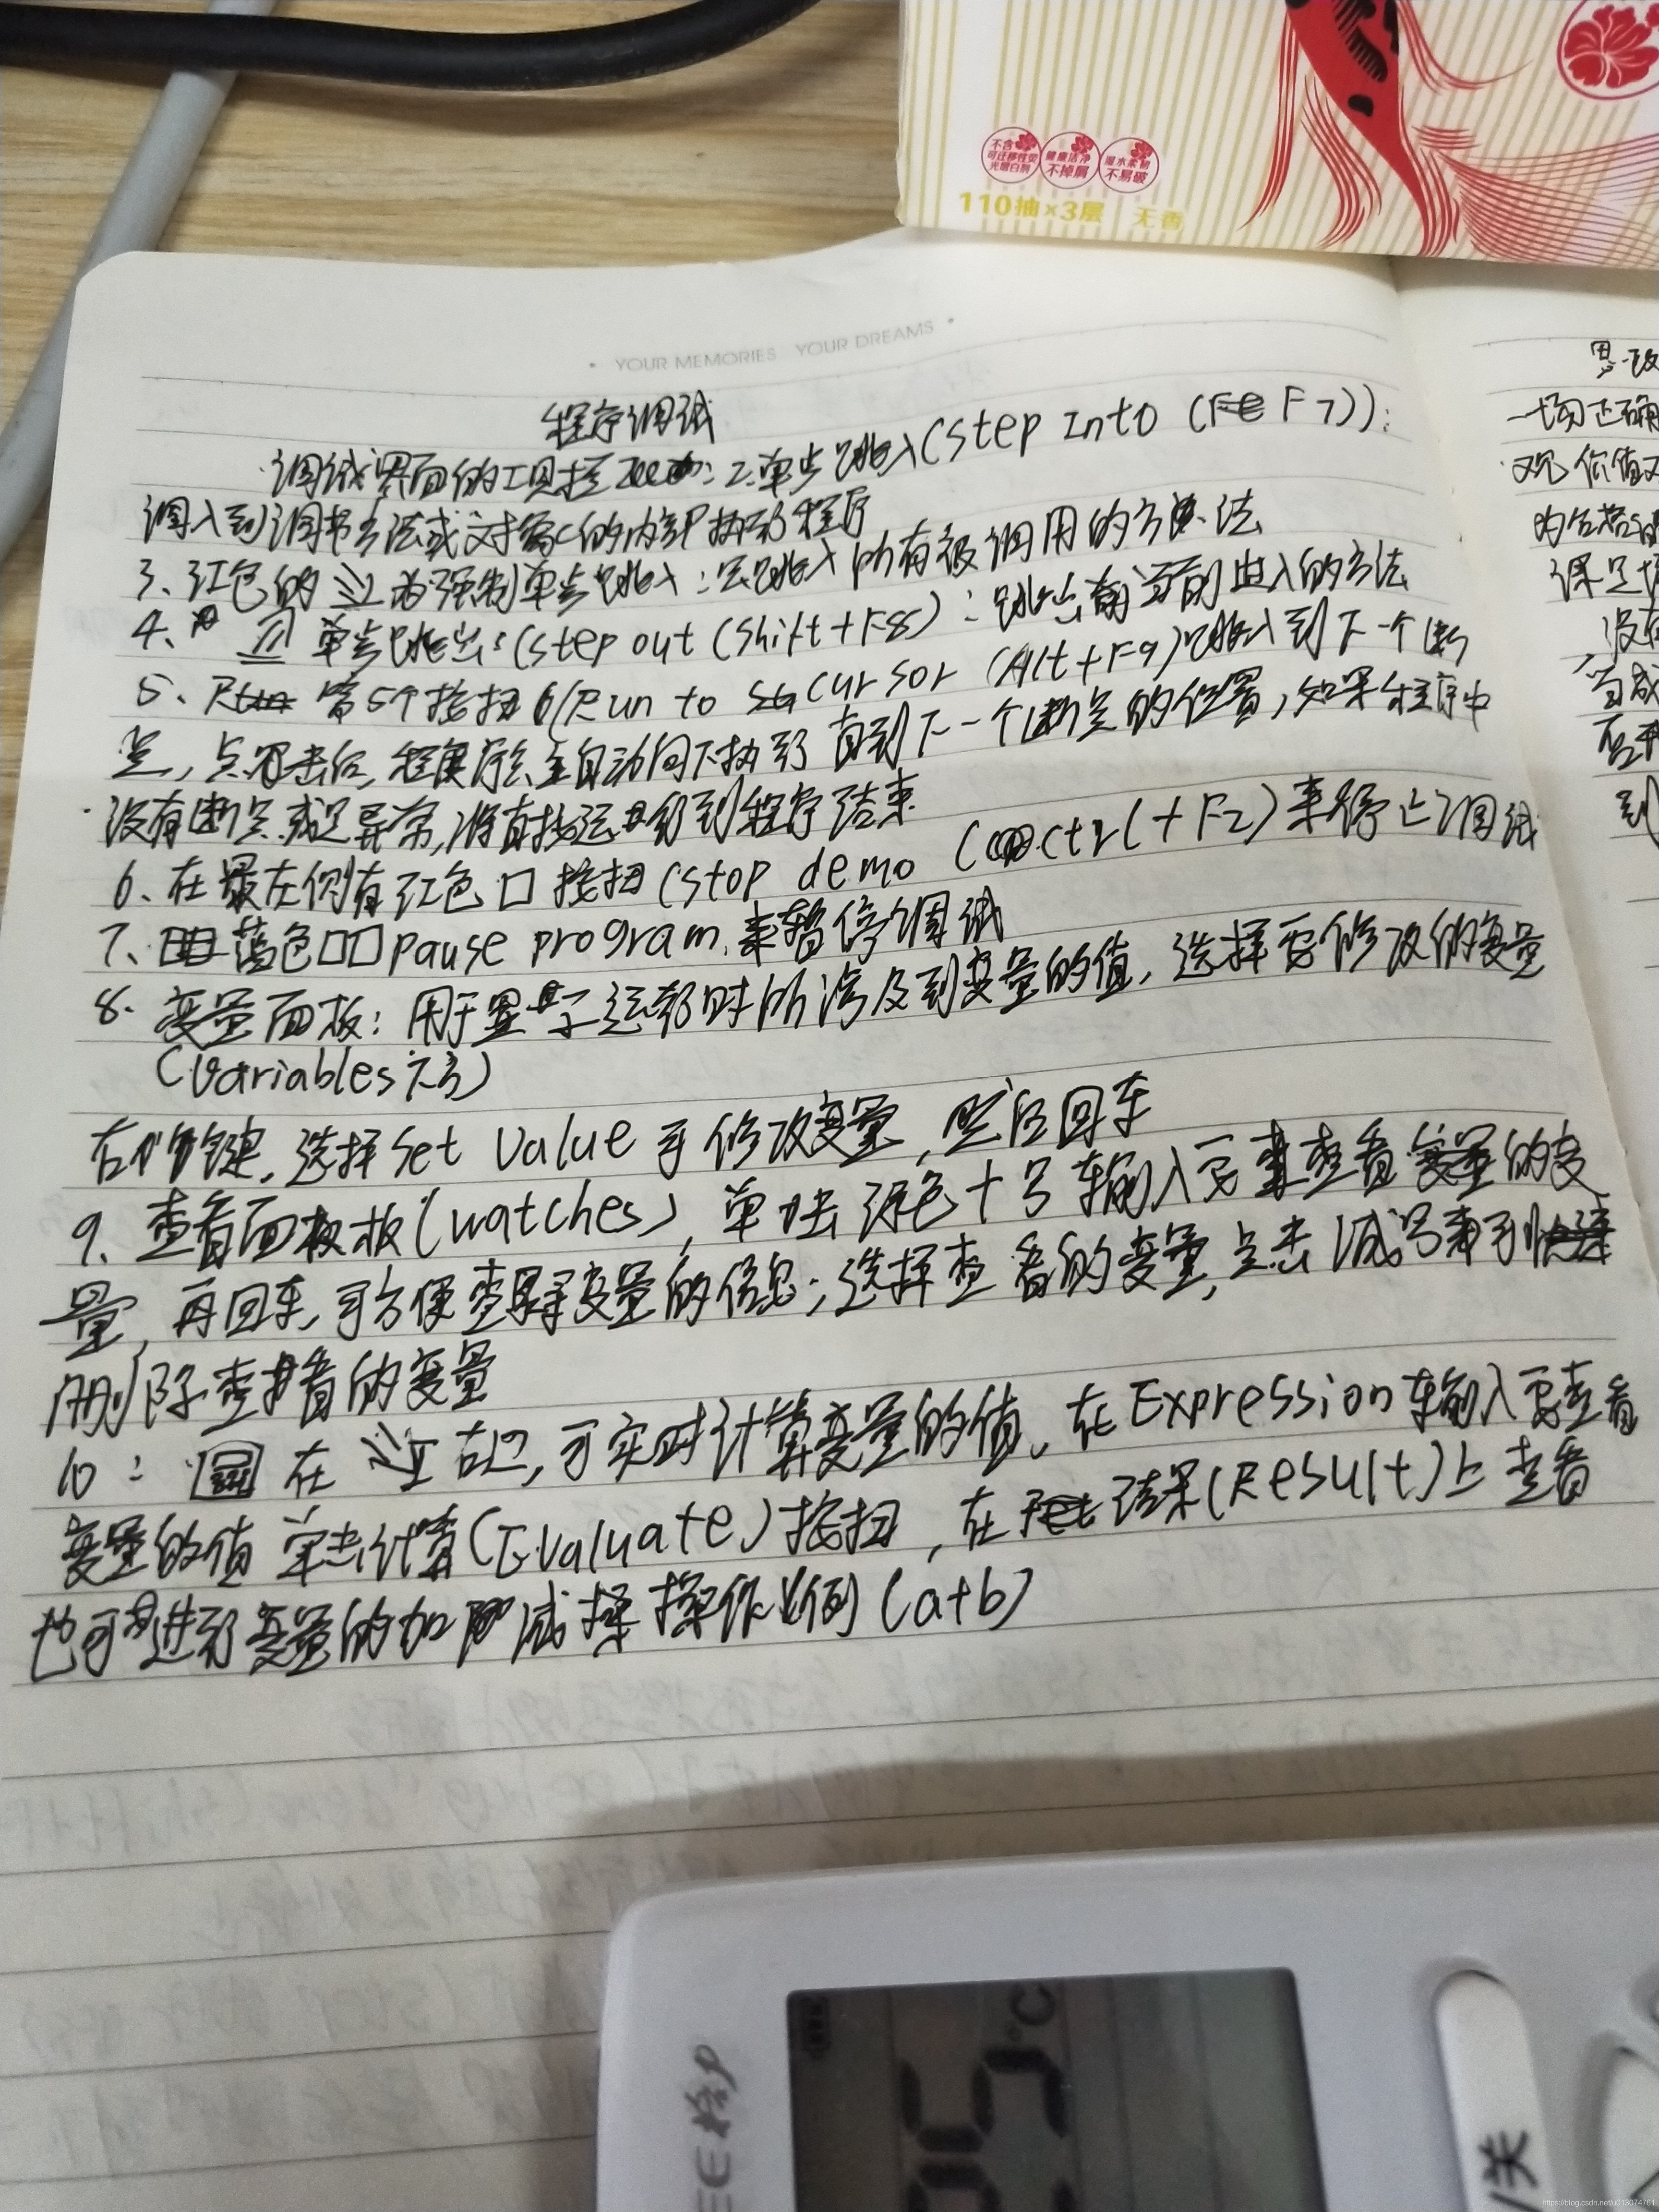 不含
可迁移性荧
光增白剂
健康洁净
不掉屑
湿水柔韧
不易破
110抽×3层 无香
YOUR MEMORIES YOUR DREAMS
程序调试
调试界面的工具按 : 2.单步跳入(step Into (F7)):
调入到调书方法或对象的内部执行程序
3、红色的 为强制单步跳入:会跳入所有被调用的方法
4、 单步跳出:(step out (Shift+F8):跳出当前进入的方法
5、第5个按扭 (Run to cursor (Alt+F9)跳入到下一个断
点,点击后,程序会自动向下执行 直到下一个断点的位置,如果程序中
没有断点或是异常,将直接运行到程序结束
6、在最左侧有红色口按扭(stop demo (ctrl+F2)来停止调试
7、蓝色口口pause program来暂停调试
8. 变量面板:用于显示运行时所涉及到变量的值,选择要修改的变量
(Variables 下方)
右键,选择Set Value可修改变量,然后回车
9、查看面板(watches),单击绿色十号输入要查看变量的变
量,再回车,可方便查看变量的信息;选择查看的变量,点击减号来
删除查看的变量
10: 在 右边,可实时计算变量的值,在Expression输入要查看
变量的值 单击计算(Evaluate)按扭,在 结果(Result)上查看
也可进行变量的加减 操作 例(a+b)
一切正确
观 价值
课是
没有
当成
到
℃
关
https://blog.csdn.net/u013074761